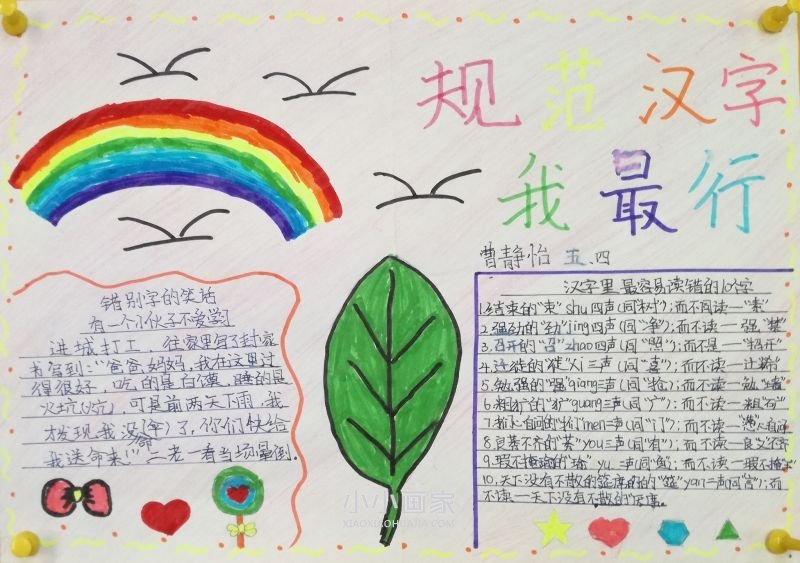 规范汉字
我最行
曹静怡 五.四
错别字的笑话
有一个小伙子不爱学习
进城打工，往家里写了封家
书写到："爸爸妈妈，我在这里过
得很好，吃的是白馍，睡的是
火坑(炕)，可是前两天下雨，我
才发现我没命(伞)了，你们快给
我送命来!"二老一看当场晕倒.
汉字里最容易读错的10个字
1.结束的"束"shu四声(同"树");而不同读—"素"
2.强劲的"劲"jing四声(同"净");而不读—强"禁"
3.召开的"召"zhao四声(同"照");而不是—"招开"
4.迁徙的"徙"xi三声(同"喜");而不读—迁
5.勉强的"强"qiang三声(同"抢");而不读—勉"墙"
6.粗犷的"犷"guang三声(同"广");而不读—粗"矿"
7.扪心自问的"扪"men二声(同"门");而不读—"
8.良莠不齐的"莠"you三声(同"有");而不读—良"秀"不齐
9.瑕不掩瑜的"瑜"yu二声(同"鱼);而不读—瑕不掩
10.天下没有不散的筵席的"筵"yan二声(同"言");而
不读—天下没有不散的
小小画家
XIAOXIAOHUAJIA.COM